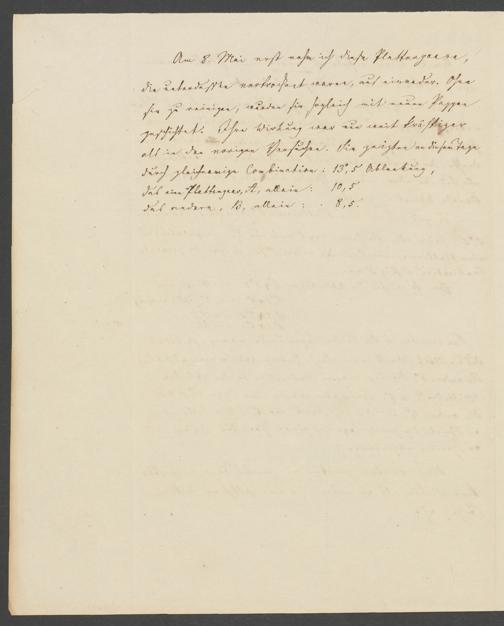 Am 8. Mai erst nahm ich diese Plattenpaare,
die unterdessen vertrocknet waren, aus einander. Ohne
sie zu reinigen, wurden sie sogleich mit neuen Pappen
geschichtet. Ihre Wirkung war nun weit kräftiger
als in den vorigen Versuchen. Sie zeigten an diesem Tage
durch gleichnamige Combination: 13,5 Ablenkung,
das eine Plattenpaar, A, allein: 10,5
das andere, B, allein: 8,5.